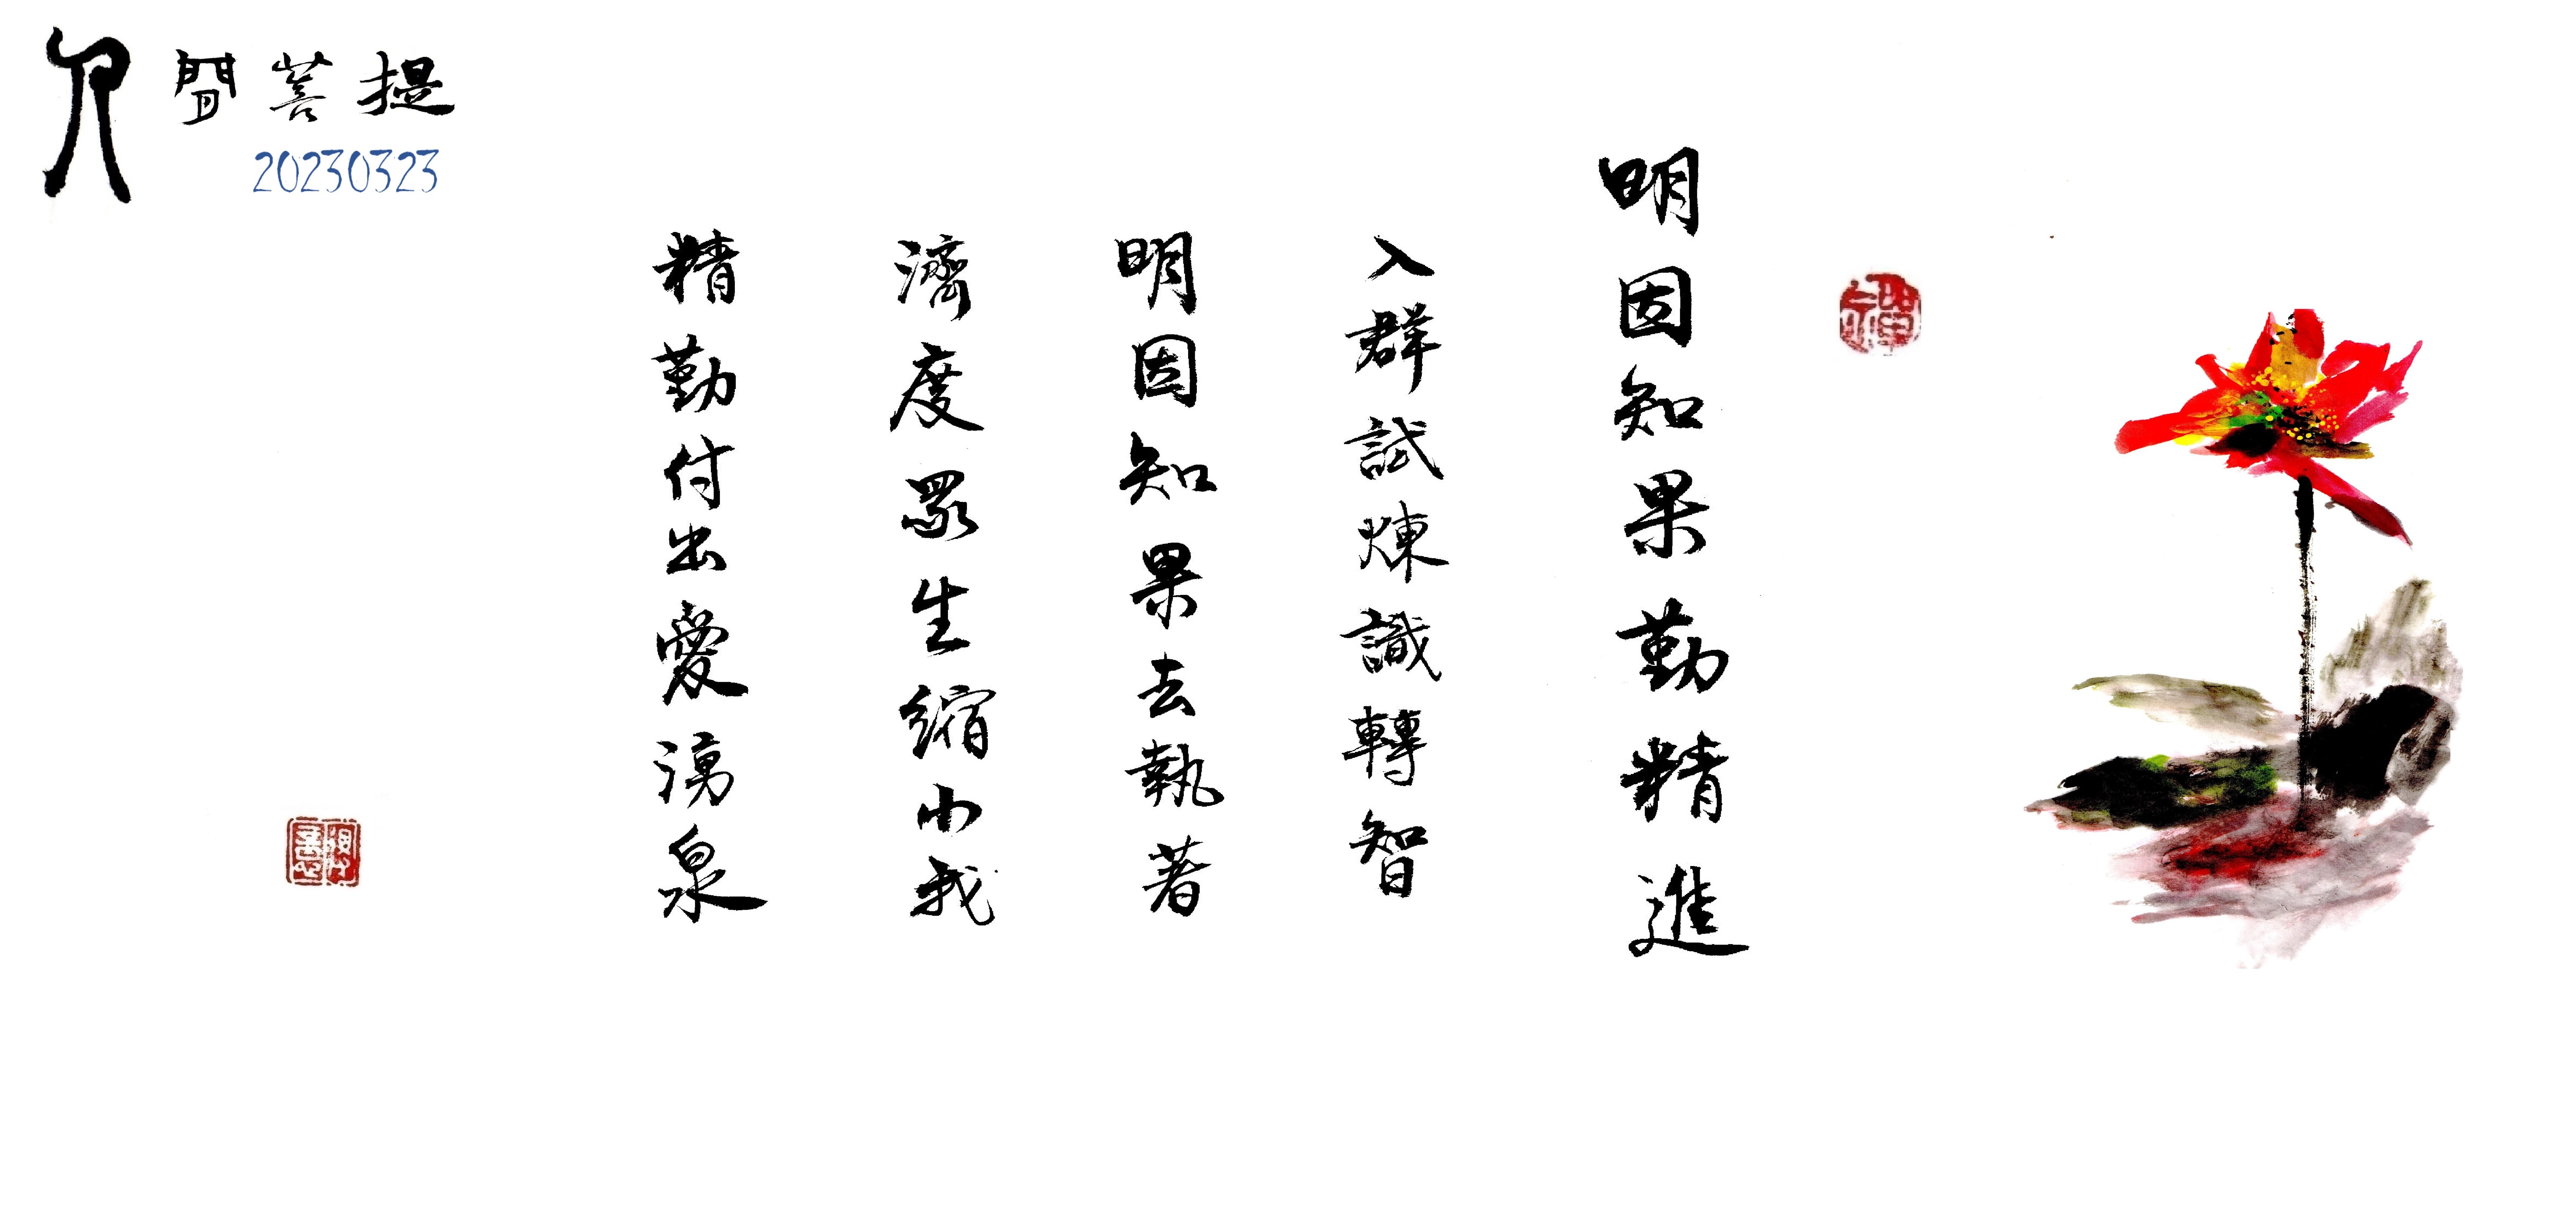 人間菩提
20230323
明因知果勤精進
入群試煉識轉智
明因知果去執著
濟度眾生縮小我
精勤付出愛湧泉
禪